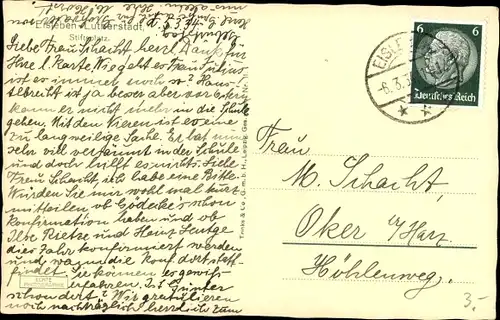 Eisleben Lutherstadt
Stiftsplatz.
Liebe Frau Schacht herzl. Dank für
Ihre l. Karte. Wie geht es Frau Julius
ist es immer noch so? Hans-
elbrecht ist ja besser aber vor
kann er nicht mehr in die Schule
gehen. Mit den Nieren ist es eine
zu langweilige Sache. Er hat nun
sehr viel versäumt in der Schule
und doch hilft es nichts. Liebe
Frau Schacht, ich habe eine Bitte.
Würden Sie mir wohl mal kurz
mitteilen ob Gödecke's schon
Konfirmation haben und ob
Ilse Rietze und Heinz
dies Jahr konfirmiert werden
und wann die Konf. dort statt-
findet. Sie können es gewiß
erfahren. Ist Günter
schon dort? Wir gratulieren
noch nachträglich herzlich zum
ECHTE
Trinks & Co., G. m. b. H., Leipzig
6
Deutsches Reich
EISLEBEN
-6.3.
Frau
M. Schacht,
Oker a/Harz
Höhlenweg.
3.-